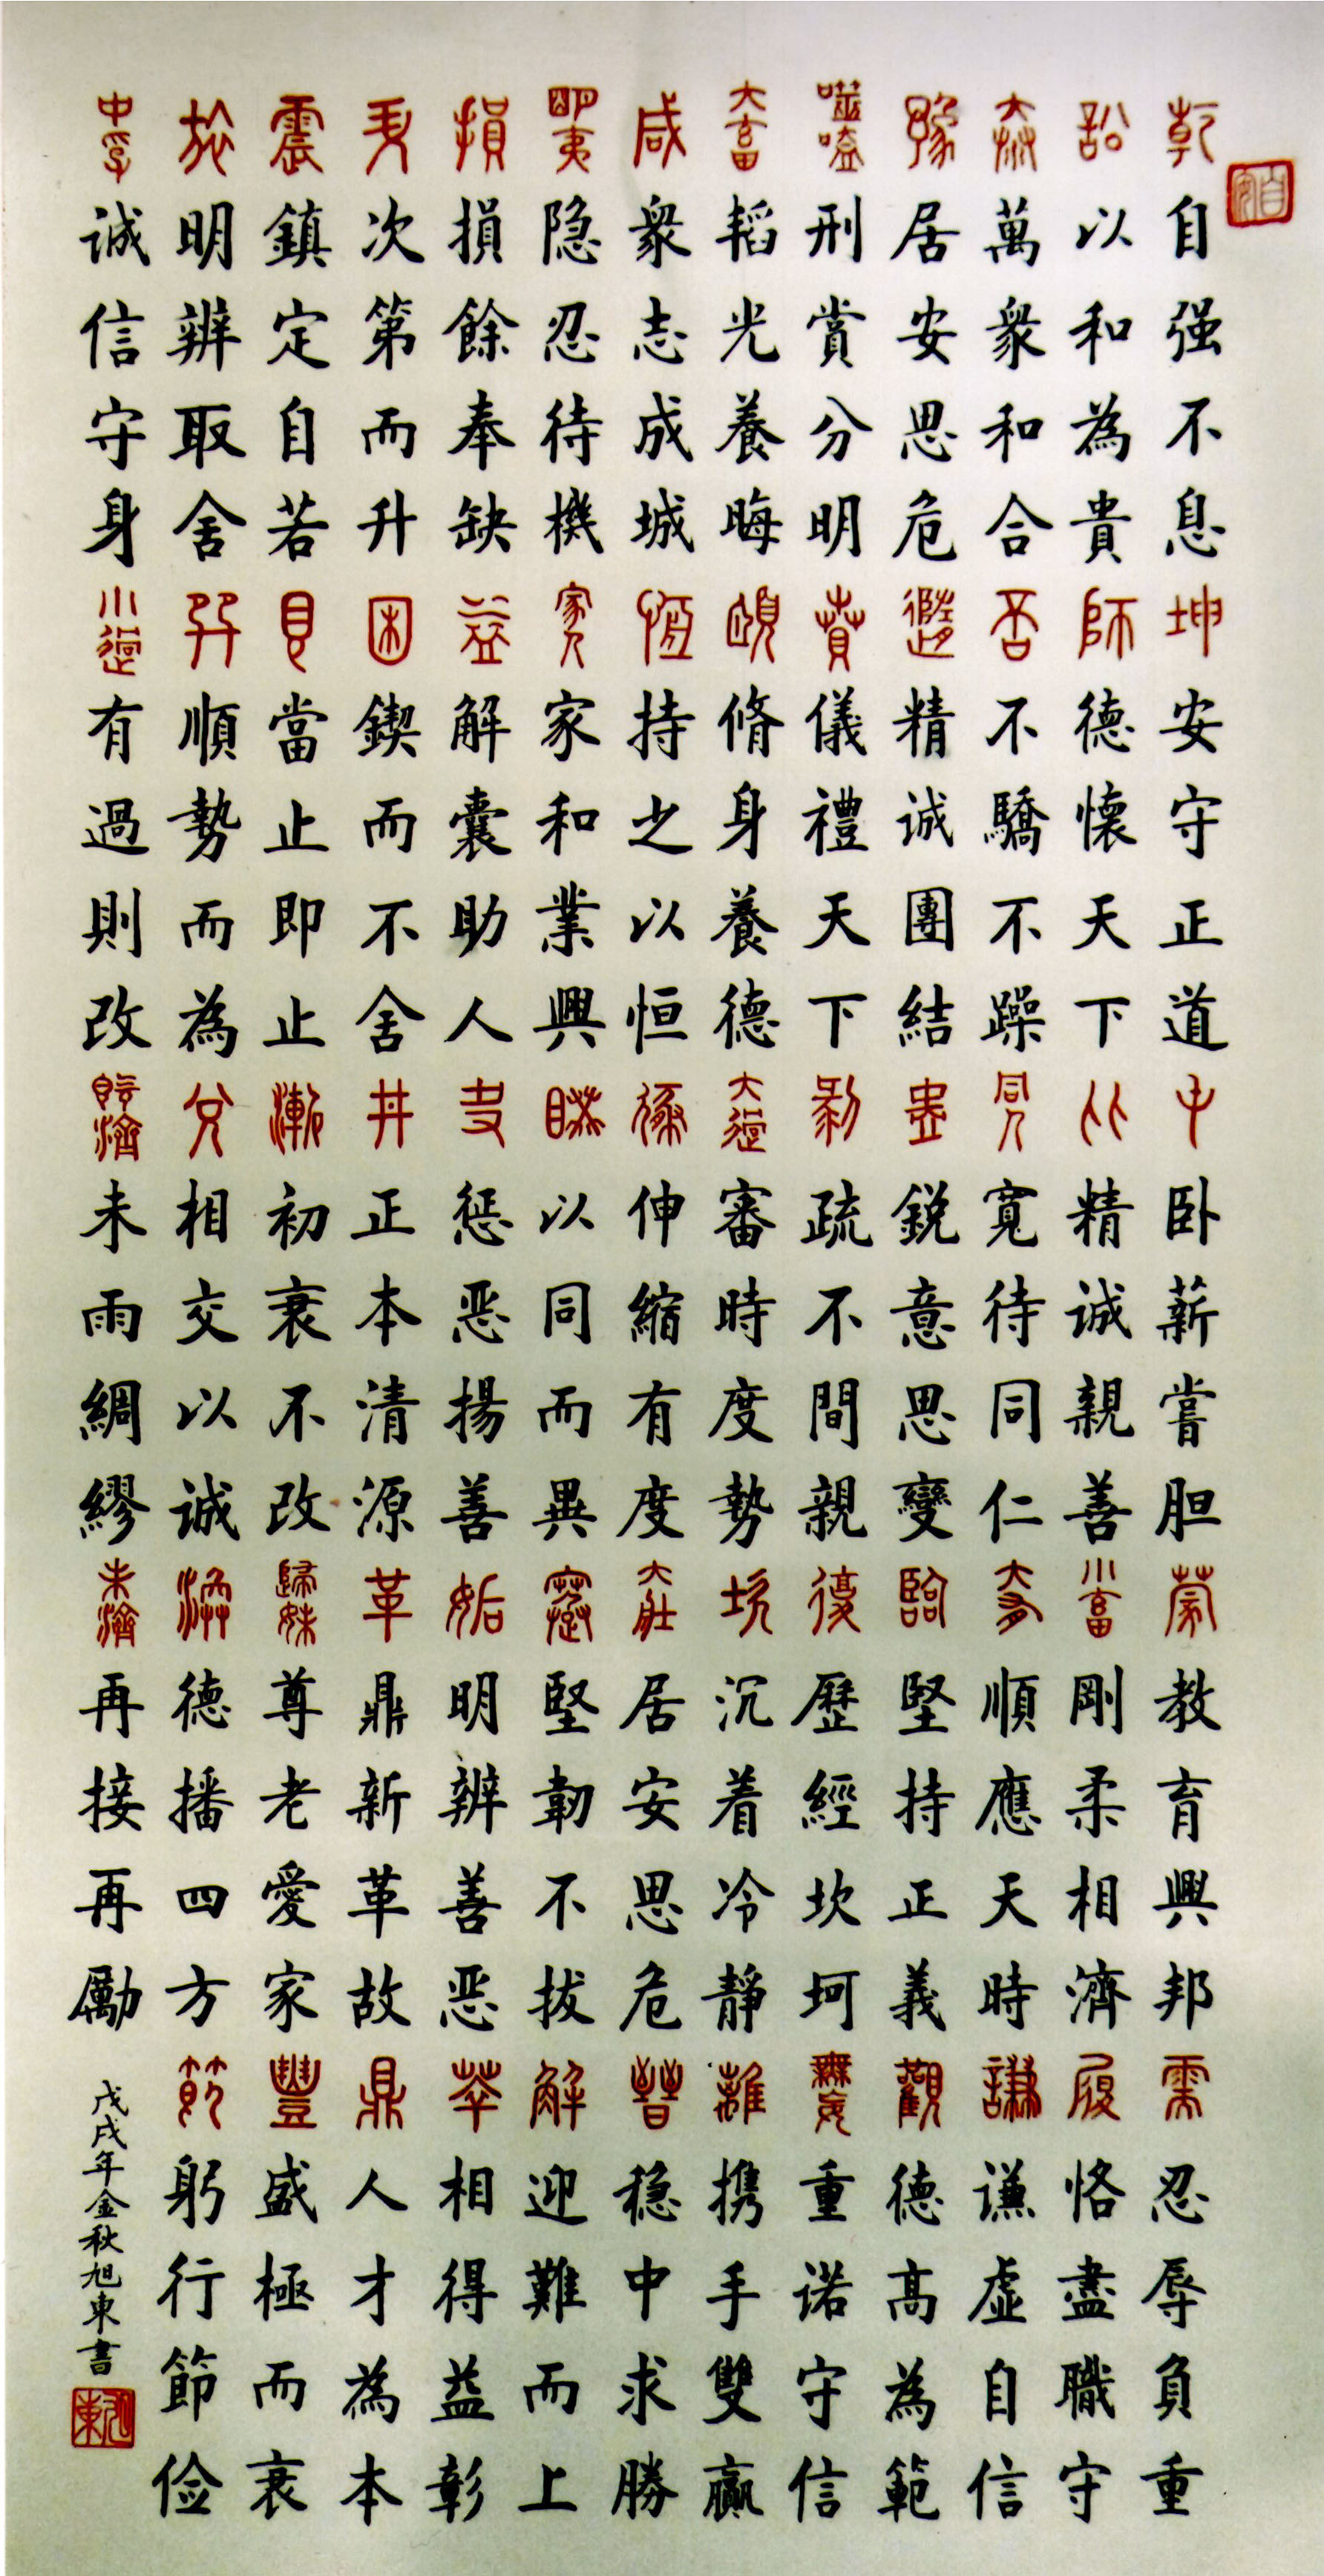 乾自强不息坤安守正道屯卧薪嘗胆蒙教育興邦需忍辱負重
訟以和為貴師德懷天下比精诚親善小畜剛柔相濟履恪盡職守
泰萬衆和合否不驕不躁同人寬待同仁大有順應天時謙谦虛自信
豫居安思危隨精诚團結蠱鋭意思變臨堅持正義觀德高為範
噬嗑刑賞分明賁儀禮天下剥疏不間親復歷經坎坷無妄重诺守信
大畜韬光養晦頤脩身養德大過審時度勢坎沉着冷靜離携手雙贏
咸衆志成城恒持之以恒遯伸縮有度大壯居安思危晉稳中求勝
明夷隐忍待機家人家和業興睽以同而異蹇堅韌不拔解迎難而上
損損餘奉缺益解囊助人夬惩恶揚善姤明辨善恶萃相得益彰
升次第而升困鍥而不舍井正本清源革鼎新革故鼎人才為本
震鎮定自若艮當止即止漸初衷不改歸妹尊老愛家豐盛極而衰
旅明辨取舍巽順勢而為兑相交以诚渙德播四方節躬行節俭
中孚诚信守身小過有過則改既濟未雨綢繆未濟再接再勵
戊戌年金秋旭東書
旭東